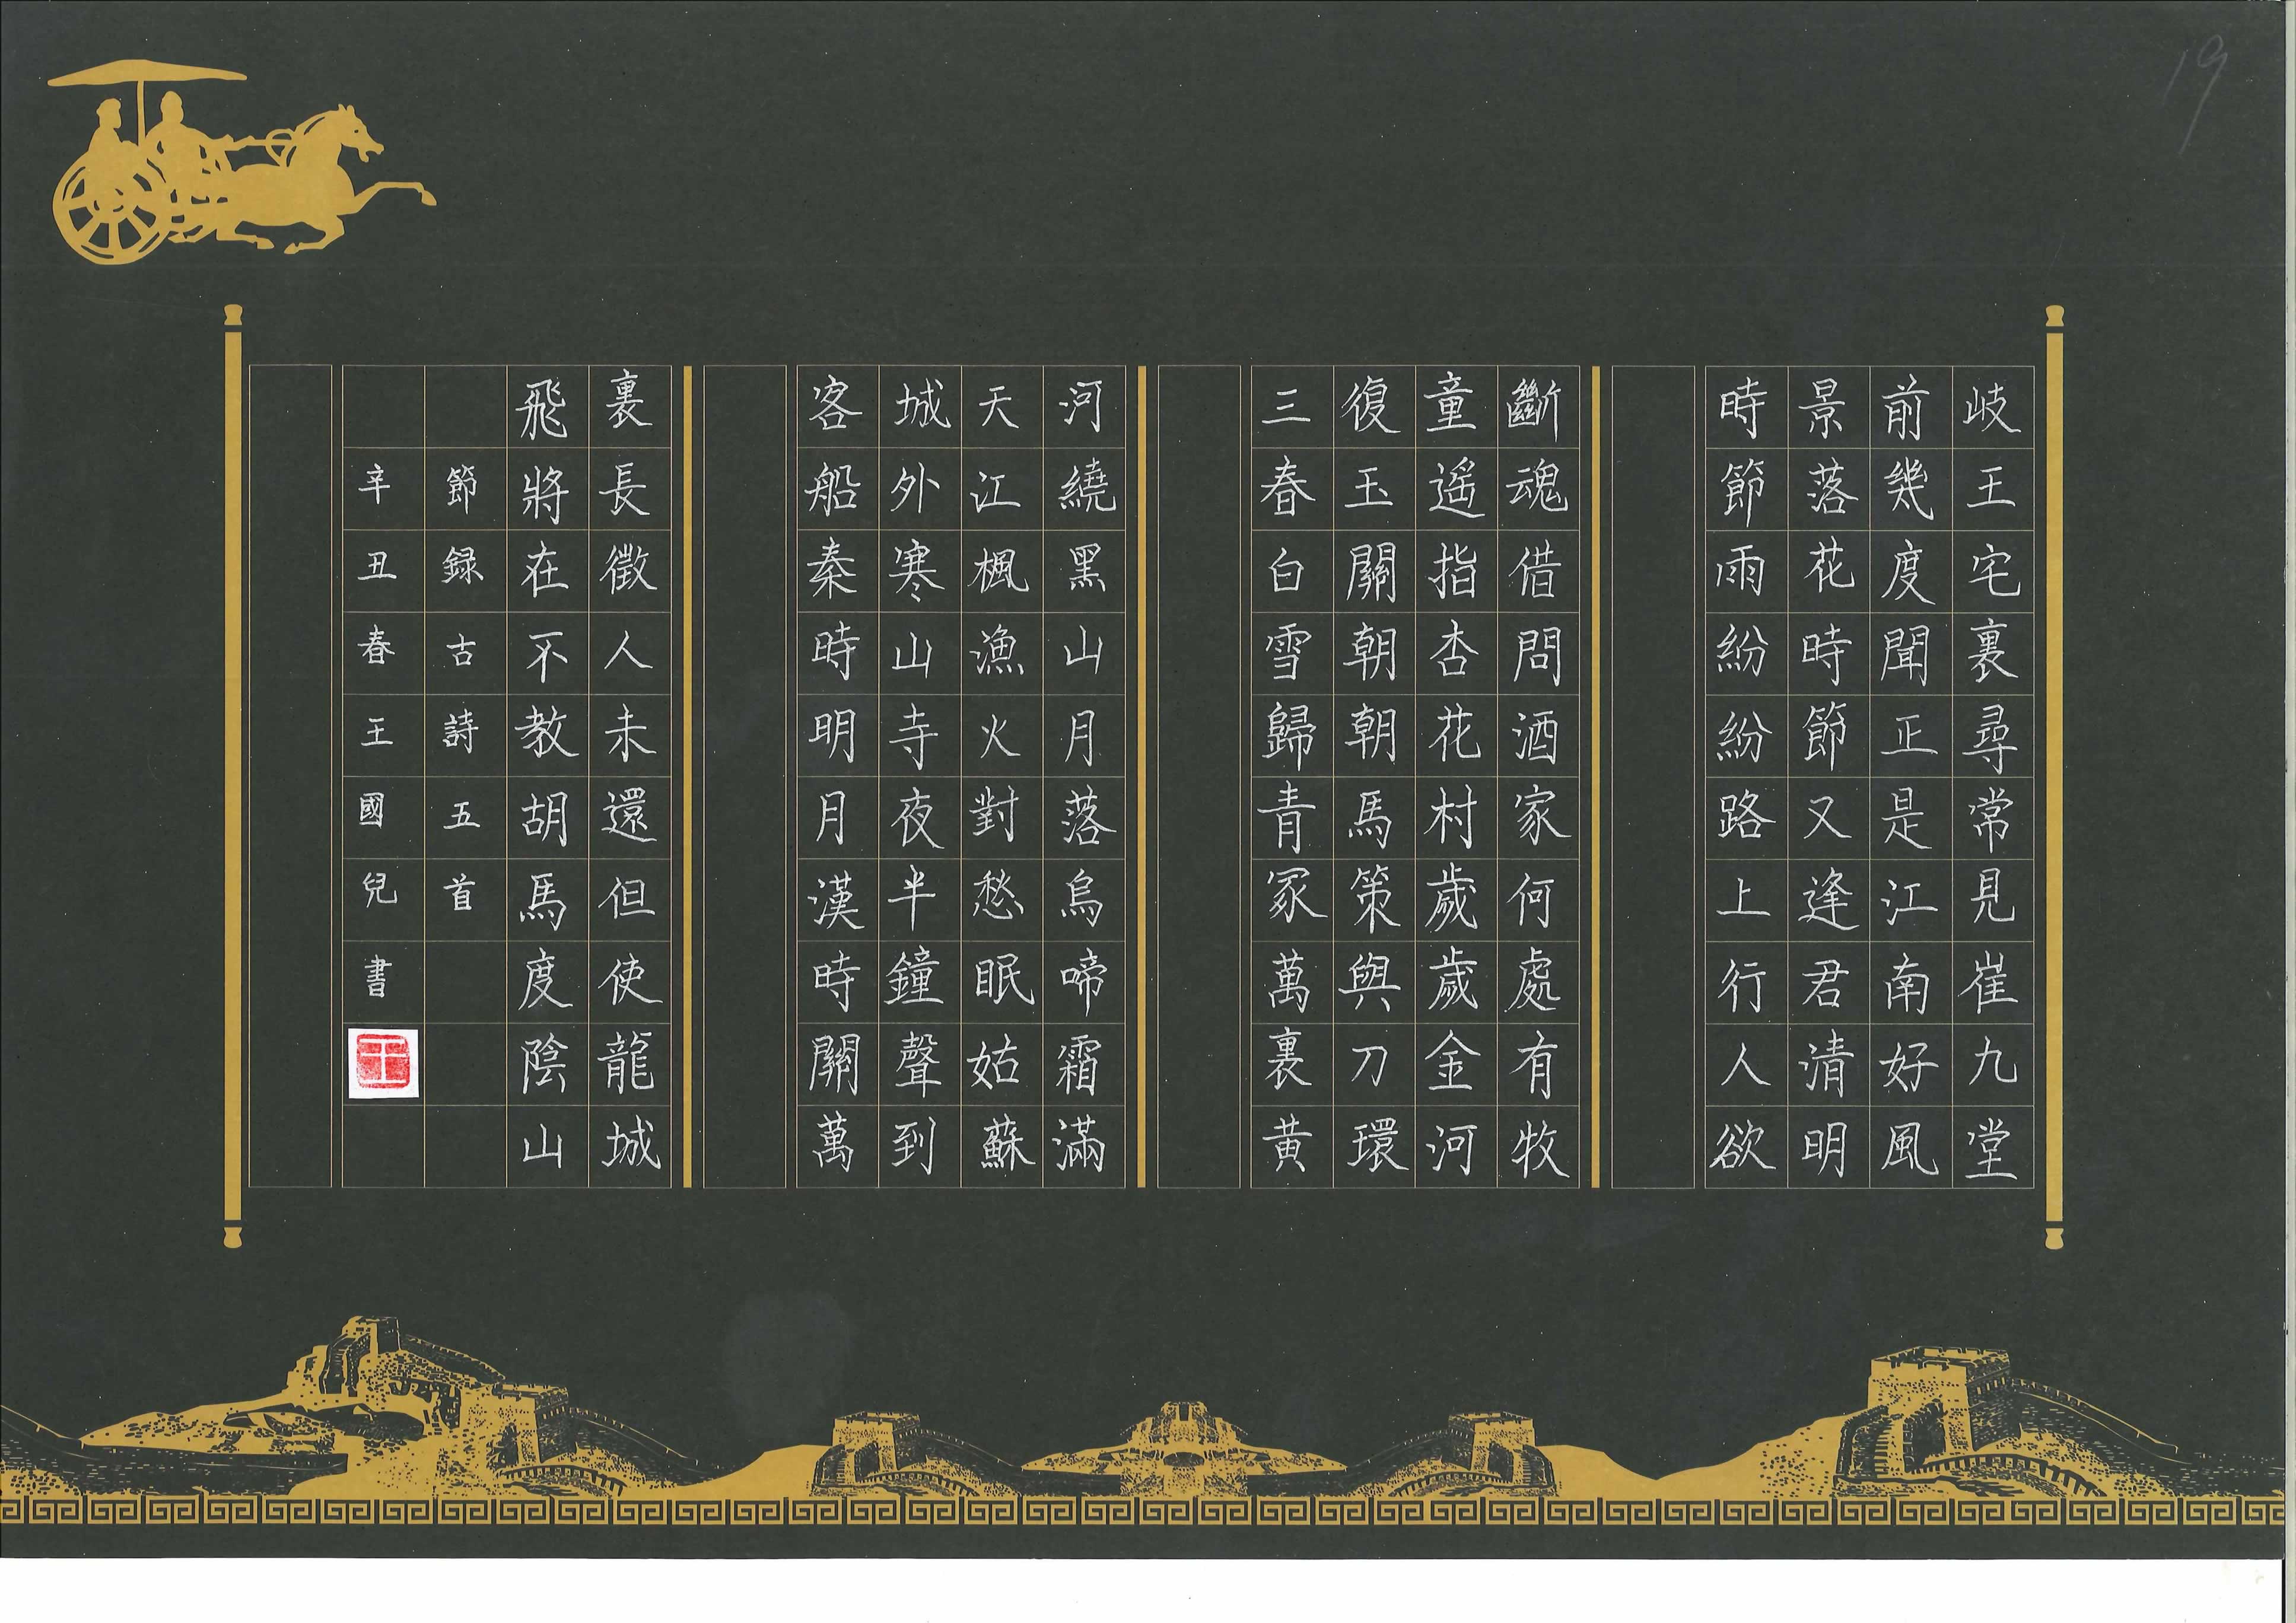 岐王宅裏尋常見崔九堂
前幾度聞正是江南好風
景落花時節又逢君清明
時節雨紛紛路上行人欲
斷魂借問酒家何處有牧
童遥指杏花村歲歲金河
復玉關朝朝馬策與刀環
三春白雪歸青冢萬裏黃
河繞黑山月落烏啼霜滿
天江楓漁火對愁眠姑蘇
城外寒山寺夜半鐘聲到
客船秦時明月漢時關萬
裏長徵人未還但使龍城
飛將在不教胡馬度陰山
節録古詩五首
辛丑春王國兒書
王
19